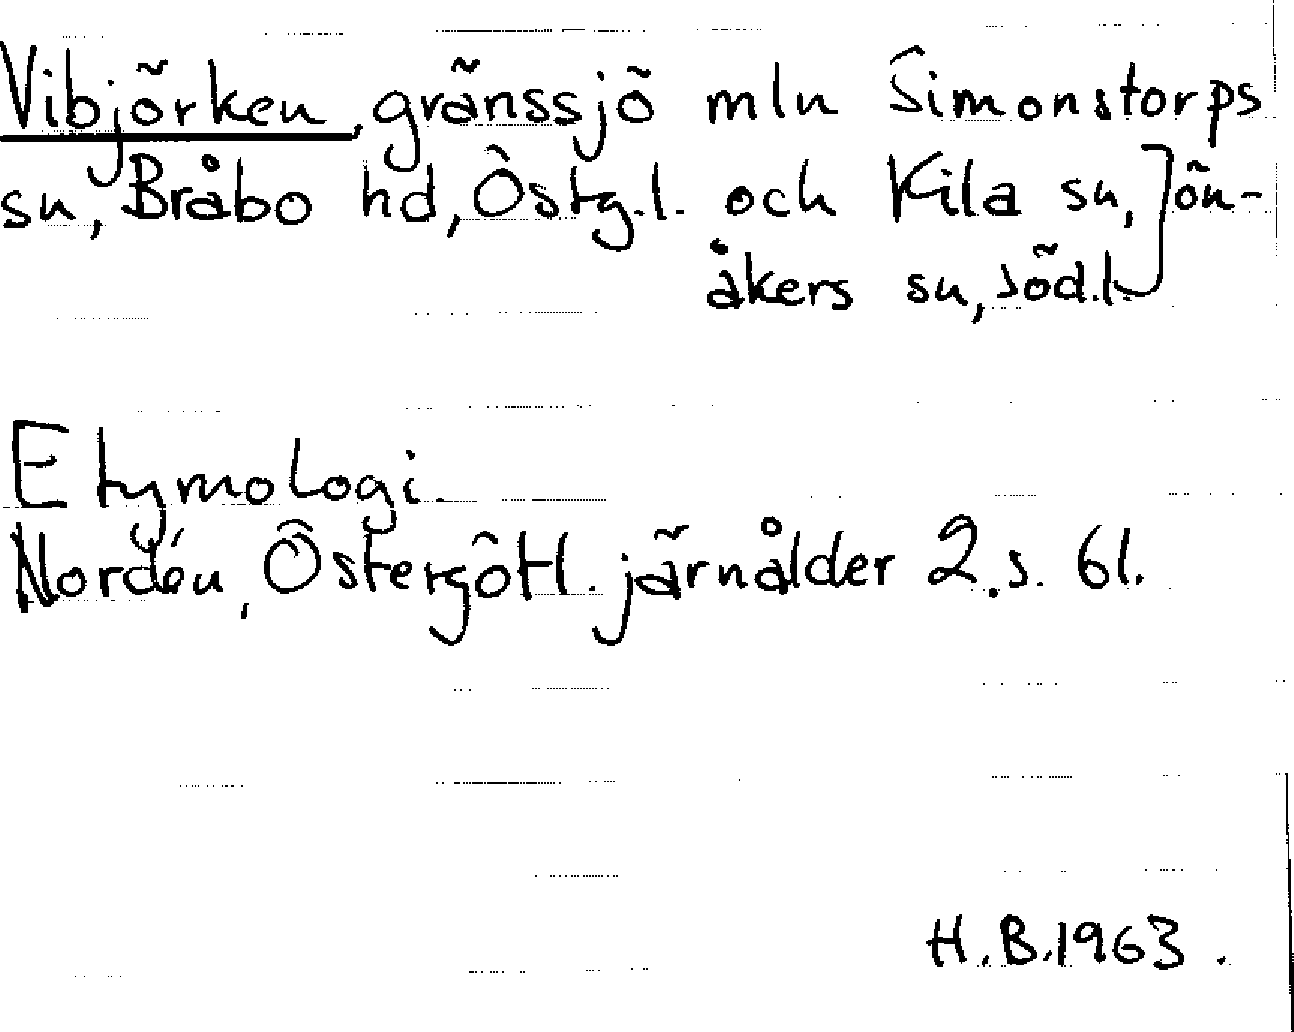 Vibjörken, gränssjö mln Simonstorps
sn, Bråbo hd, Östg.l. och Kila sn, Jön-
åkers sn, Söd.l.
Etymologi.
Nordén, Östergötl. järnålder 2.s. 61.
H.B.1963.